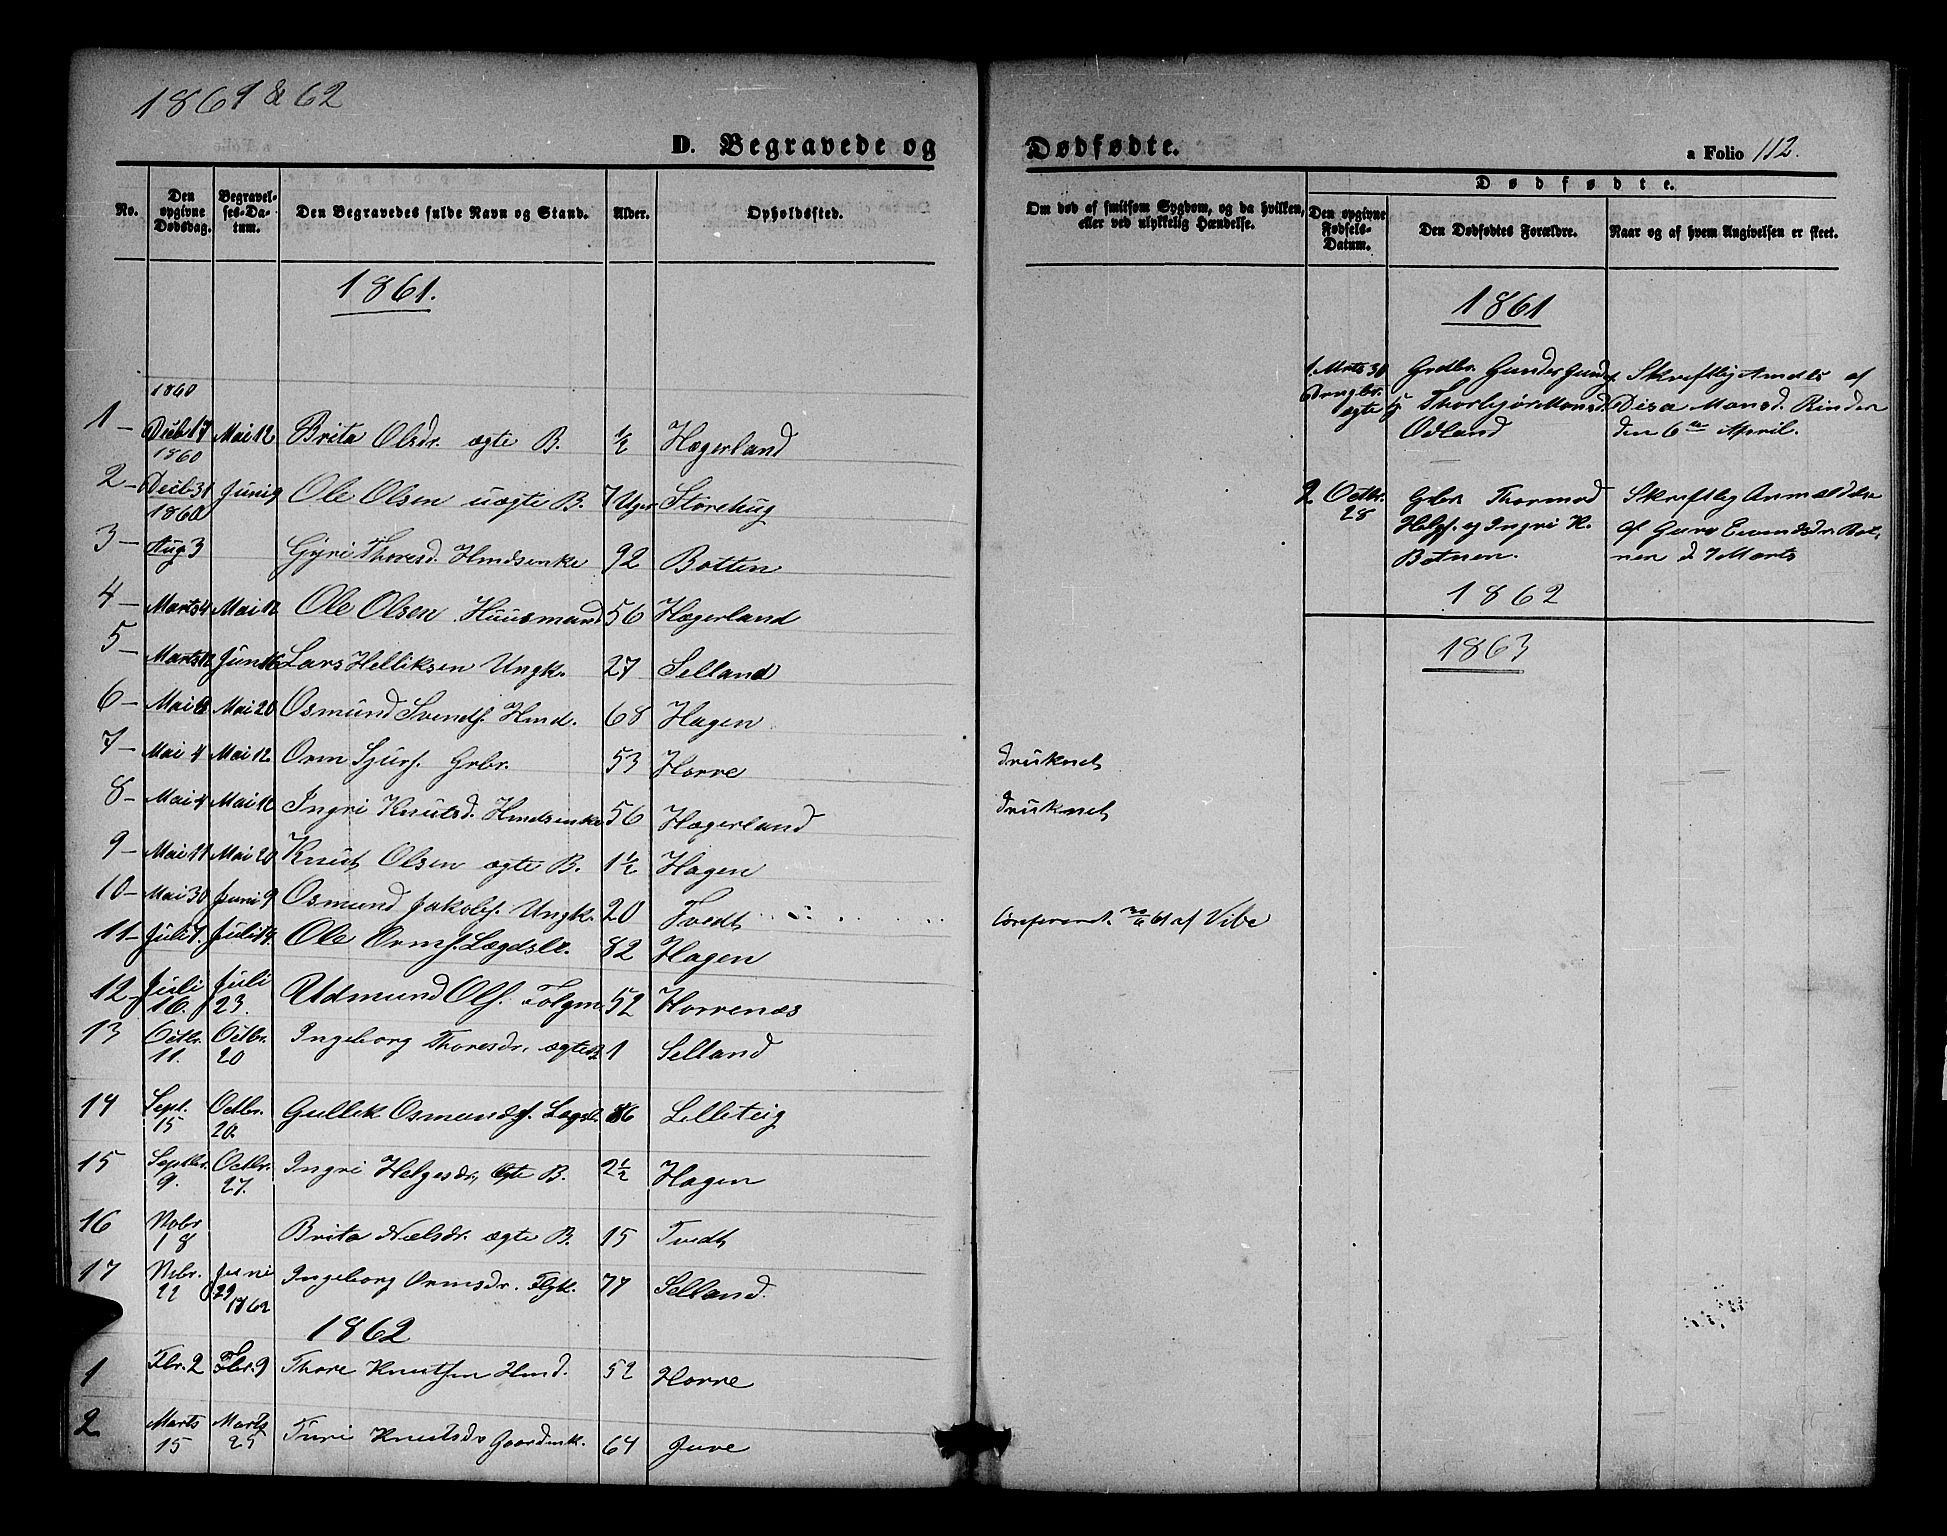 1861 & 62
D. Begravede og
Dødfødte.
a Folio 112.
No.
Den opgivne Dødsdag.
Begravelses-Datum.
Den Begravedes fulde Navn og Stand.
Alder.
Opholdssted.
Om død af smitsom Sygdom, og da hvilken,
eller ved ulykkelig Hændelse.
Dødfødte.
Den opgivne Fødsels-Datum.
Den Dødfødtes Forældre.
Naar og af hvem Angivelsen er skeet.
1861.
1860
1 – Decb 17 Mai 12 Brita Olsdr. ægte B. ½ Hægerland
1860
2 – Decb 31 Juni 9 Ole Olsen uægte B. 7 Uger Storehug
1860
3 – Aug 3 Gyri Thoresd. Hmdsenke 92 Botten
4 – Marts 4 Mai 12 Ole Olsen Huusmand 56 Hægerland
5 – Marts 12 Juni 16 Lars Helliksen Ungk. 27 Selland
6 – Mai 8 Mai 20 Osmund Svends. Hmd. 68 Hagen
7 – Mai 4 Mai 12 Orm Sjurs. Grbr. 53 Horre Druknet
8 – Mai 4 Mai 12 Ingri Knutsd. Hmdsenke 56 Hægerland Druknet
9 – Mai 11 Mai 20 Knut Olsen ægte B. 1½ Hagen
10 – Mai 30 Juni 9 Osmund Jakobs. Ungk. 20 Tvedt 61 af Vibe
11 – Juli 1. Juli 14 Ole Orms. Lægdsl. 82 Hagen
12 – Juli 16. Juli 23. Udmund Ols. Folgm 52 Horrenæs
13 Octbr. 11. Octbr. 20 Ingeborg Thoresdr. ægte B. 1 Selland
14 Sept. 15 Octbr. 20. Gullik Osmunds. Lægdsl. 86 Lilleteig
15 Septbr. 9. Octbr. 27. Ingri Helgesdr., ægte B. 2½ Hagen
16 Nobr 18 Brita Nielsdr. ægte B. 15 Tvedt
17 Nbr. 22 Juni 29 1862 Ingeborg Ormsdr. Flgk. 77 Selland.
1862
1 Fbr. 2 Fbr. 9 Thore Knutsen Hmd. 52 Horre
2 Marts 15 Marts 25 Turi Knutsdr Gaardmk. 64 Juve
1861
1 Mrts 30 Grdbr. Gunder Gunders. Skriftlig Anmeldt af
Drngbr. ægte Thorbjør Monsd. Disa Monsd. Rinden
Odland den 6te April.
2 Octbr. 28 Grbr. Thormod Skriftlig Anmeldelse
Helgs. og Ingri K. af Guro Eivindsdr. Bot-
Botnen. nen d 7 Marts
1862
1863